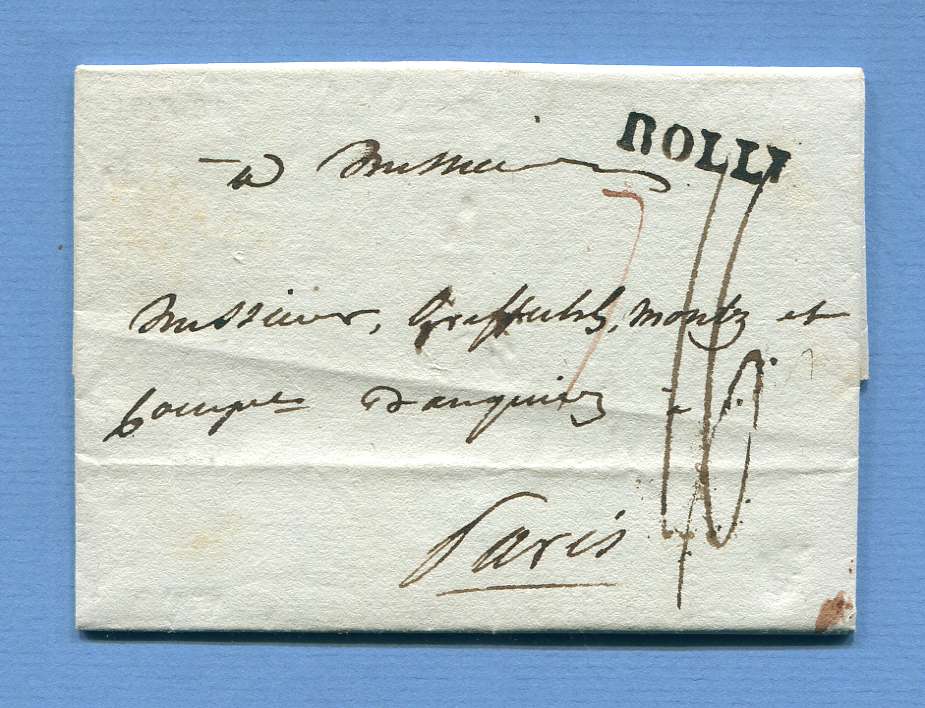 ROLLE
a Messieurs
Messieurs, Greffulhe, Montz et
Compe Banquiers à
Paris